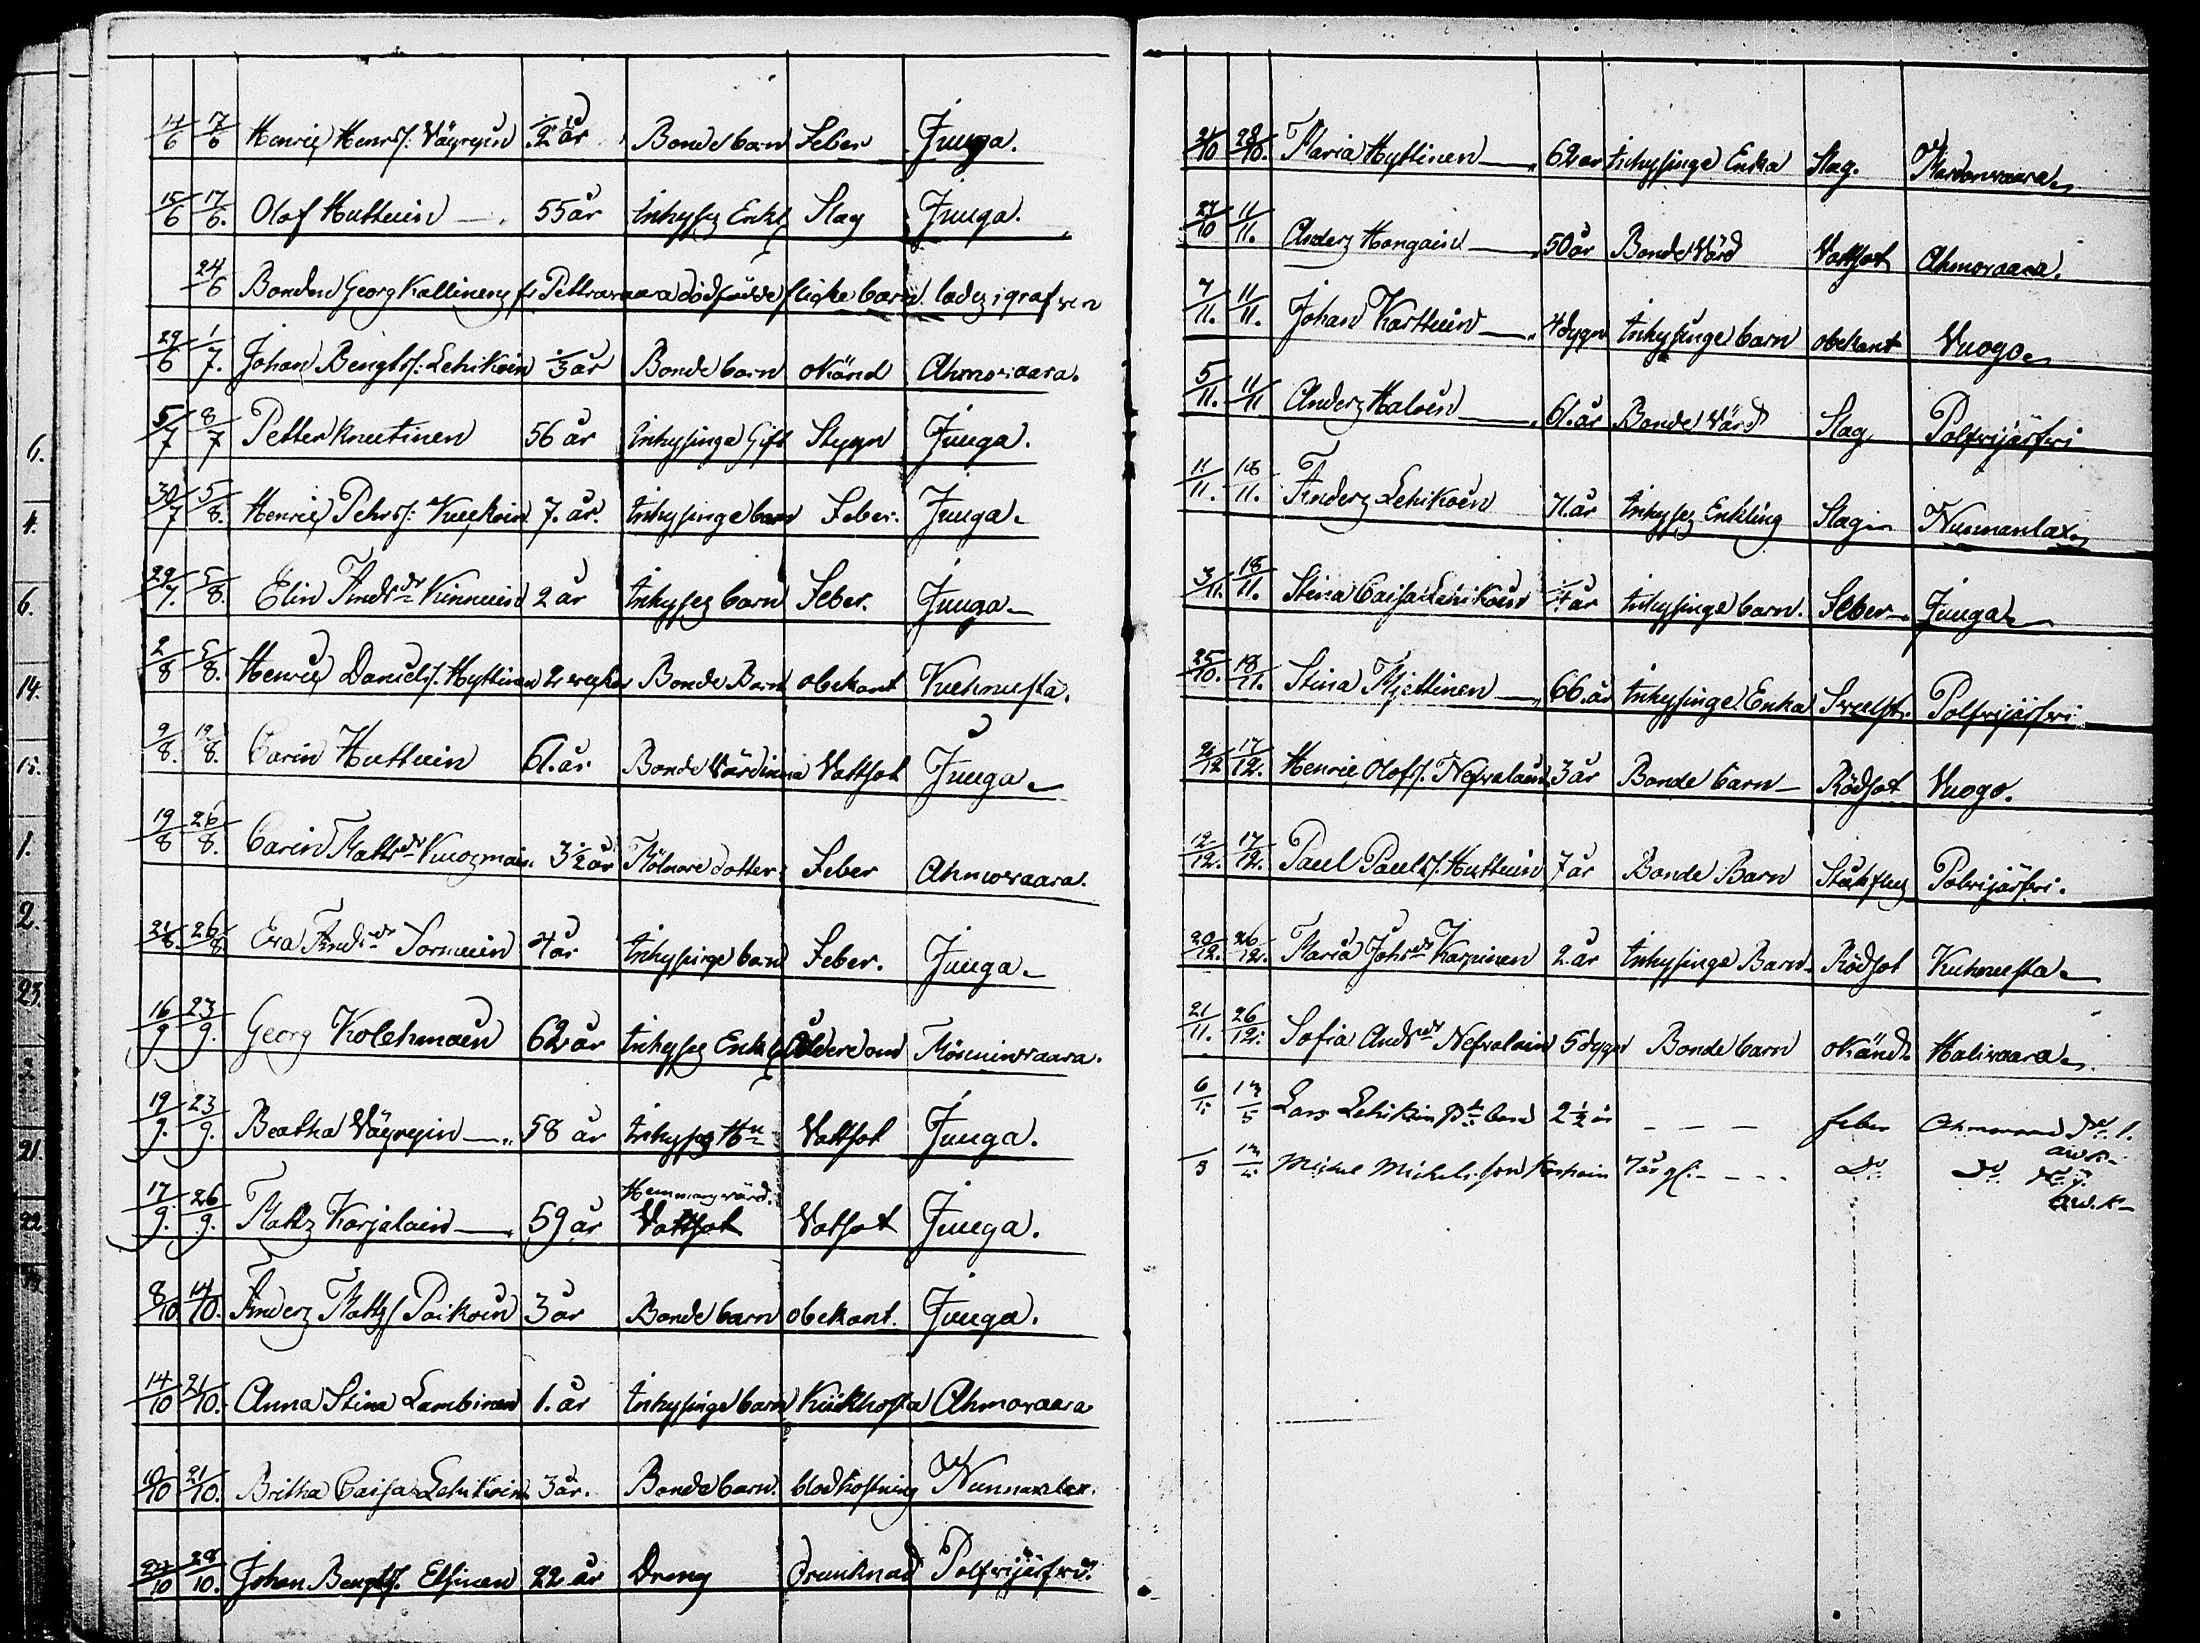 14/6 17/6 Henric Henrs: Väyrynen 1/2 år Bonde barn Feber Juuga.
15/6 17/6. Olof Huttuin 55 år Inhyses Enkl Slag Juuga.
24/6 Bonden Georg Kallinens fr Petrovaara dödfödde flicke barn lades i grafven
29/6 1/7. Johan Bengts: Lehikoin 1/3 år Bonde barn okänd Ahmovaara.
5/7 8/7 Petter Knuutinen 56 år Inhysinge Gift Stygn Juuga.
30/7 5/8. Henric Pehrs: Kuckoin 7. år. Inhysinge barn Feber. Juuga.
29/7. 5/8. Elin Andsdr Kinnuin 2 år Inhyses barn Feber. Juuga.
2/8 5/8. Henric Daniels. Hyttinen 2 veckor Bonde Barn obekant Kuhnusta.
9/8. 12/8. Carin Huttuin 61. år Bonde Värdinna Vattsot Juuga.
19/8 26/8. Carin Mattsdr Kuosmain 3 1/2 år Mölnare dotter Feber Ahmovaara.
26/8 Eva Andsdr Sormuin 4 år Inhysinge barn Feber. Juuga.
16/9. 23/9. Georg Kolehmaen 62 år Inhyses Enkl Ålderdom
19/9. 23/9. Beatha Väyrynin 58 år Inhyses Hu Vattsot Juuga.
Hemmans värd.
17/9. 26/9. Matts Karjalain 59 år Vattsot Vatsot Juuga.
8/10 14/10. Anders Matts Paikoin 3 år Bonde barn obekant. Juuga.
14/10 21/10. Anna Stina Lambinen 1. år Inhysinge barn Kükhosta Ahmovaara
10/10 21/10. Britha Caisa Lehikoin 3 år. Bonde barn. blodhostning Nunnanlax.
22/10 28/10. Johan Bengts. Elsinen 22 år Dreng Drunknad Polfvijärfvi.
28/10. Maria Hyttinen 62 år Inhysinge Enka Slag. Martonvaara
27/10 11/11. Anders Hongain 50 år Bonde Värd Vattsot Ahmovaara.
7/11. 11/11. Johan Karttuin 4 dygn Inhysinge barn obekant Vuogo
5/11. 11/11 Anders Haloin 61. år Bonde Värd Slag Polfvijärfvi
11/11. 18/11. Anders Lehikoin 71. år Inhyses Enkling Slag Nunnanlax
3/11. 18/11. Stina Caisa Lehikoin 1/4 år Inhysinge barn. Feber Juuga
25/10. 18/11. Stina Mjettinen 66. år Inhysinge Enka Svulst. Polfvijärfvi
17/12. Henric Olofs. Nefvalain 3 år Bonde barn Rödsot Vuogo.
12/12. 17/12. Paul Pauls. Huttuin 7 år Bonde Barn Polvijärfvi.
20/12. 26/12. Maria Johsdr Karpinen 2. år Inhysinge Barn Rödsot Kuhnusta
21/11. 26/12. Sofia Andsdr Nefvalain 5 dygn Bonde barn okänd Halivaara
6/1. /5 Lars Lehikoin 2 1/2 år feber
Michel Michelsson 7 år Do Do